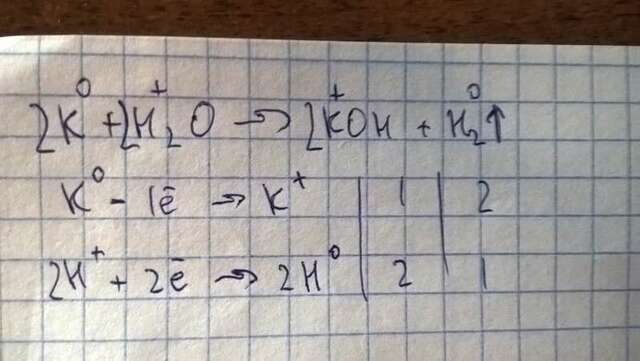 2K⁰ + 2H₂⁺O → 2K⁺OH + H₂⁰↑
K⁰ - 1ē → K⁺ | 1 | 2
2H⁺ + 2ē → 2H⁰ | 2 | 1